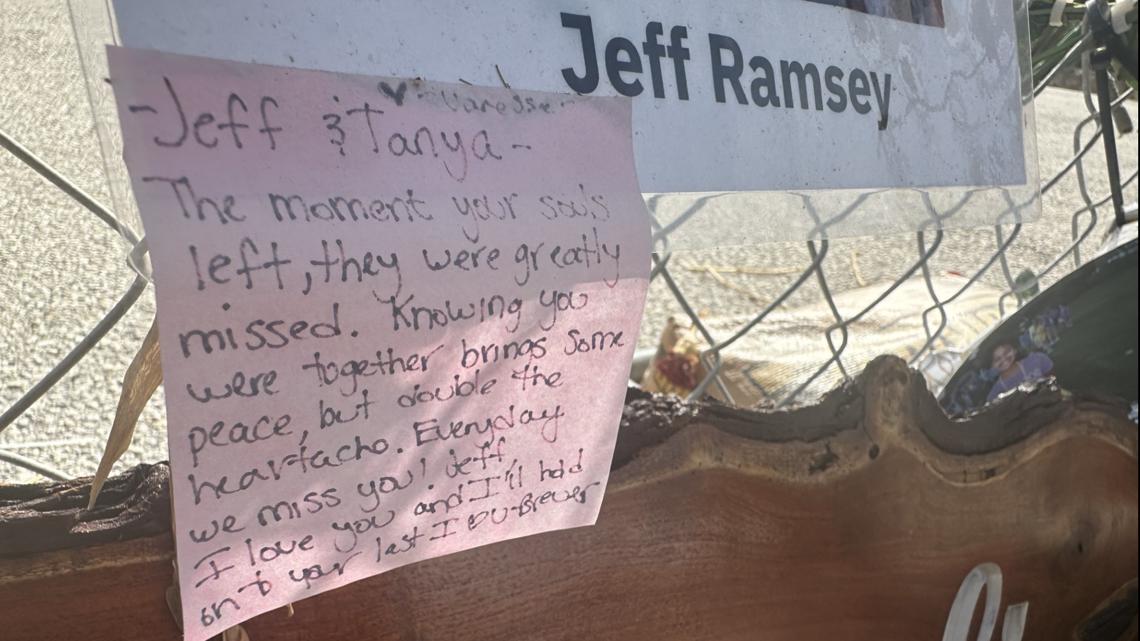 Jeff Ramsey
-Jeff & Tanya-
The moment your souls
left, they were greatly
missed. Knowing you
were together brings some
peace, but double the
heartacho. Everyday
we miss you! Jeff
I love you and I'll hold
onto your last I ♡U-Brewer